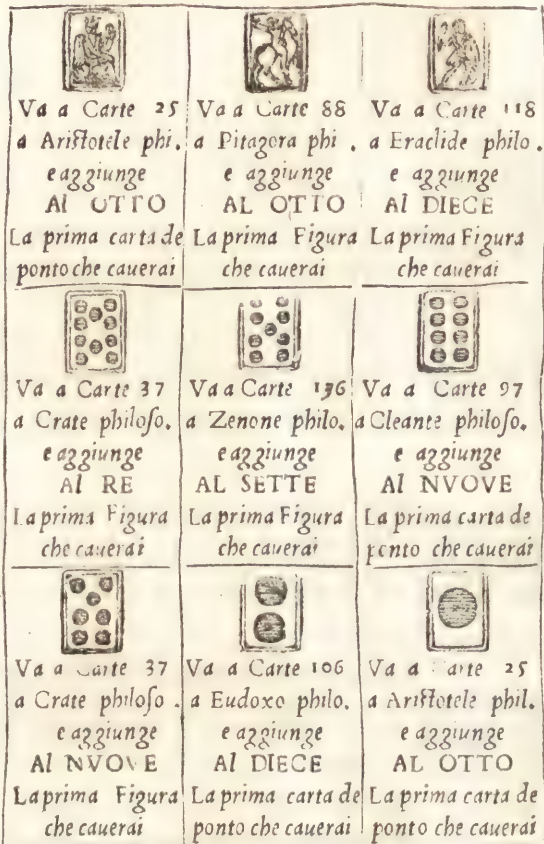 Va a Carte 25
a Aristotele phi.
e aggiunge
Al OTTO
La prima carta de
ponto che cauerai
Va a Carte 88
a Pitagora phi .
e aggiunge
AL OTTO
La prima Figura
che cauerai
Va a Carte 118
a Eraclide philo.
e aggiunge
Al DIECE
La prima Figura
che cauerai
Va a Carte 37
a Crate philoſo.
e aggiunge
Al RE
La prima Figura
che cauerai
Va a Carte 136
a Zenone philo.
e aggiunge
AL SETTE
La prima Figura
che cauerai
Va a Carte 97
a Cleante philoſo.
e aggiunge
Al NVOVE
La prima carta de
ponto che cauerai
Va a Carte 37
a Crate philoſo .
e aggiunge
Al NVOVE
La prima Figura
che cauerai
Va a Carte 106
a Eudoxo philo.
e aggiunge
Al DIECE
La prima carta de
ponto che cauerai
Va a Carte 25
a Aristotele phil.
e aggiunge
AL OTTO
La prima carta de
ponto che cauerai